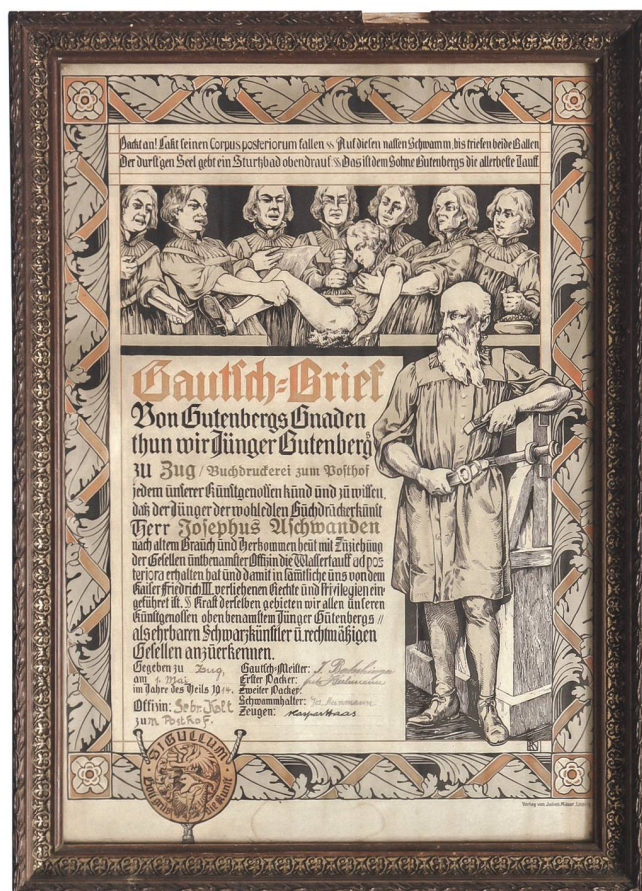 Packt an! Laßt seinen Corpus posteriorum fallen § Auf diesen nassen Schwamm, bis triefen beide Ballen
Der durst'gen Seel gebt ein Sturzbad obendrauf § Das ist dem Sohne Gutenbergs die allerbeste Tauff.
Gautsch=Brief
Von Gutenbergs Gnaden
thun wir Jünger Gutenbergs
zu Zug / Buchdruckerei zum Posthof
jedem unserer Kunstgenossen kund und zu wissen,
daß der Jünger der wohledlen Buchdruckerkunst
Herr Josephus Aschwanden
nach altem Brauch und Herkommen heut mit Zuziehung
der Gesellen untbenamster Offizin die Wassertauff ad pos=
teriora erhalten hat und damit in sämtliche uns von dem
Kaiser Friedrich III. verliehenen Rechte und Privilegien ein=
geführet ist. § Kraft derselben gebieten wir allen unseren
Kunstgenossen oben benamstem Jünger Gutenbergs //
als ehrbaren Schwarzkünstler u. rechtmäßigen
Gesellen anzuerkennen.
Gegeben zu Zug,
am 1. Mai
im Jahre des Heils 1914.
Offizin: Gebr. Kalt
zum Posthof.
Gautsch=Meister:
Erster Packer:
Zweiter Packer:
Schwammhalter:
Zeugen: Kaspar Haas
SIGILLUM
Gott die Kunst
Verlag von Julius Mäser, Leipzig